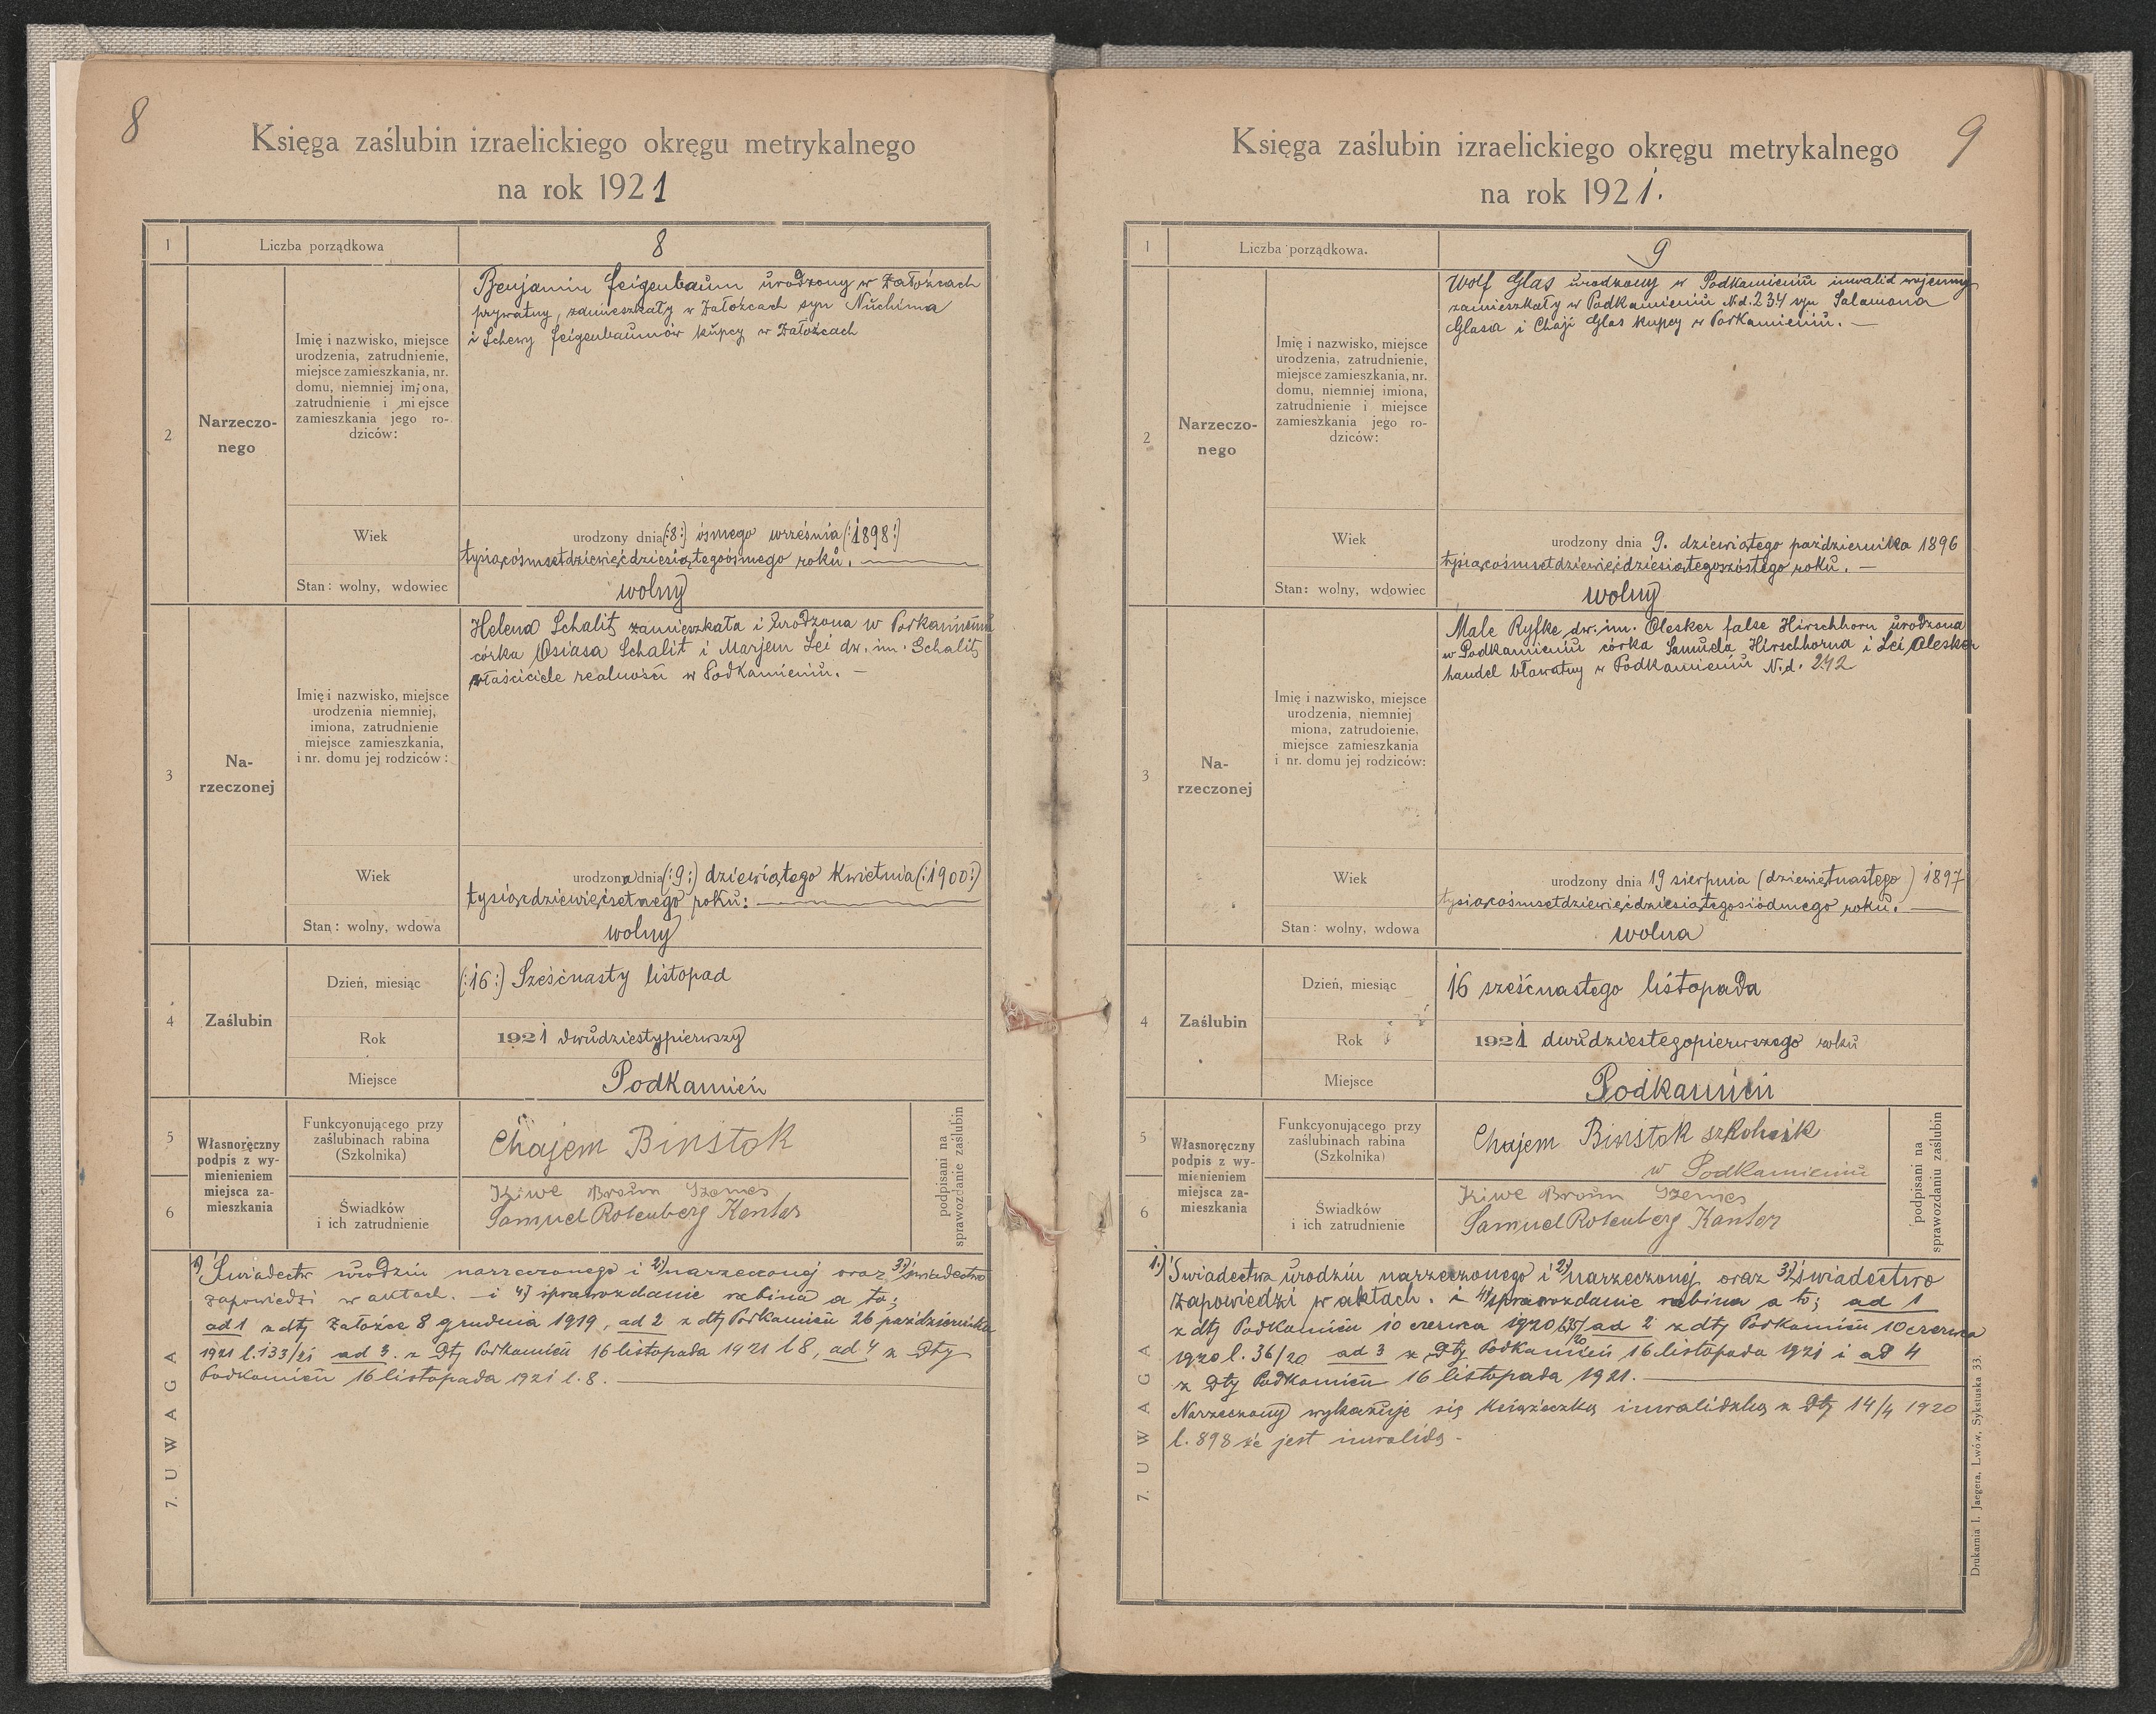 8
Księga zaślubin izraelickiego okręgu metrykalnego
na rok 1921
1
Liczba porządkowa
8
2
Narzeczo-
nego
Imię i nazwisko, miejsce
urodzenia, zatrudnienie,
miejsce zamieszkania, nr.
domu, niemniej imiona,
zatrudnienie i miejsce
zamieszkania jego ro-
dziców:
Benjamin Feigenbaum urodzony w Załoźcach
prywatny, zamieszkały w Załoźcach syn Nuchima
i Schewy Feigenbaumów kupcy w Załoźcach
Wiek
urodzony dnia (:8:) ósmego września (:1898:)
tysiącośmsetdziewięćdziesiątegoósmego roku.
Stan: wolny, wdowiec
wolny
3
Na-
rzeczonej
Imię i nazwisko, miejsce
urodzenia niemniej,
imiona, zatrudnienie
miejsce zamieszkania,
i nr. domu jej rodziców:
Helena Schalit zamieszkała i urodzona w Podkamieniu
córka Osiasa Schalit i Marjem Lei dw. im. Schalit
właściciele realności w Podkamieniu. —
Wiek
urodzona dnia (:9:) dziewiątego Kwietnia (:1900:)
tysiącdziewięćsetnego roku:
Stan: wolny, wdowa
wolny
4
Zaślubin
Dzień, miesiąc
(:16:) Sześćnasty listopad
Rok
1921 dwudziestypierwszy
Miejsce
Podkamień
5
6
Własnoręczny
podpis z wy-
mienieniem
miejsca za-
mieszkania
Funkcyonującego przy
zaślubinach rabina
(Szkolnika)
Chajem Binstok
Świadków
i ich zatrudnienie
Kiwe Braun
Samuel Rotenberg Kantor
podpisani na
sprawozdanie zaślubin
7. UWAGA
1) Świadectw urodzin narzeczonego i 2) narzeczonej oraz 3) świadectwo
zapowiedzi w aktach. — i 4) sprawozdanie rabina a to;
ad 1 z dty Załoźce 8 grudnia 1919, ad 2 z dty Podkamień 26 października
1921 l. 133/21 ad 3. z Dty Podkamień 16 listopada 1921 l 8, ad 4 z Dty
Podkamień 16 listopada 1921 l. 8.
9
Księga zaślubin izraelickiego okręgu metrykalnego
na rok 1921.
1
Liczba porządkowa.
9
2
Narzeczo-
nego
Imię i nazwisko, miejsce
urodzenia, zatrudnienie,
miejsce zamieszkania, nr.
domu, niemniej imiona,
zatrudnienie i miejsce
zamieszkania jego ro-
dziców:
Wolf Glas urodzony w Podkamieniu inwalid wojenny
zamieszkały w Podkamieniu N.d. 234 syn Salamona
Glasa i Chaji Glas kupcy w Podkamieniu. —
Wiek
urodzony dnia 9. dziewiątego października 1896
tysiącośmsetdziewięćdziesiątegoszóstego roku. —
Stan: wolny, wdowiec
wolny
3
Na-
rzeczonej
Imię i nazwisko, miejsce
urodzenia, niemniej
miona, zatrudoienie,
miejsce zamieszkania
i nr. domu jej rodziców:
Male Ryfke dw. im. Olesker false Hirschhorn urodzona
w Podkamieniu córka Samuela Hirschhorna i Lei Olesker
handel bławatny w Podkamieniu N.d. 242
Wiek
urodzony dnia 19 sierpnia (dziewiętnastego) 1897
tysiącośmsetdziewięćdziesiątegosiódmego roku.
Stan: wolny, wdowa
wolna
4
Zaślubin
Dzień, miesiąc
16 sześćnastego listopada
Rok
1921 dwudziestegopierwszego roku
Miejsce
Podkamień
5
6
Własnoręczny
podpis z wy-
mienieniem
miejsca za-
mieszkania
Funkcyonującego przy
zaślubinach rabina
(Szkolnika)
Chajem Binstok szkolnik
w Podkamieniu
Świadków
i ich zatrudnienie
Kiwe Braun
Samuel Rotenberg Kantor
podpisani na
sprawozdaniu zaślubin
7. UWAGA
1.) Świadectwa urodzin narzeczonego i 2) narzeczonej oraz 3) świadectwo
zapowiedzi w aktach. i 4) sprawozdanie rabina a to; ad 1
z dty Podkamień 10 czerwca 1920 l. 35/20 ad 2 z dty Podkamień 10 czerwca
1920 l. 36/20 ad 3 z Dty Podkamień 16 listopada 1921 i ad 4
z Dty Podkamień 16 listopada 1921.
Narzeczony wykazuje się książeczką inwalidzką z Dty 14/4 1920
l. 898 że jest inwalidą -
Drukarnia I. Jaegera, Lwów, Sykstuska 33.